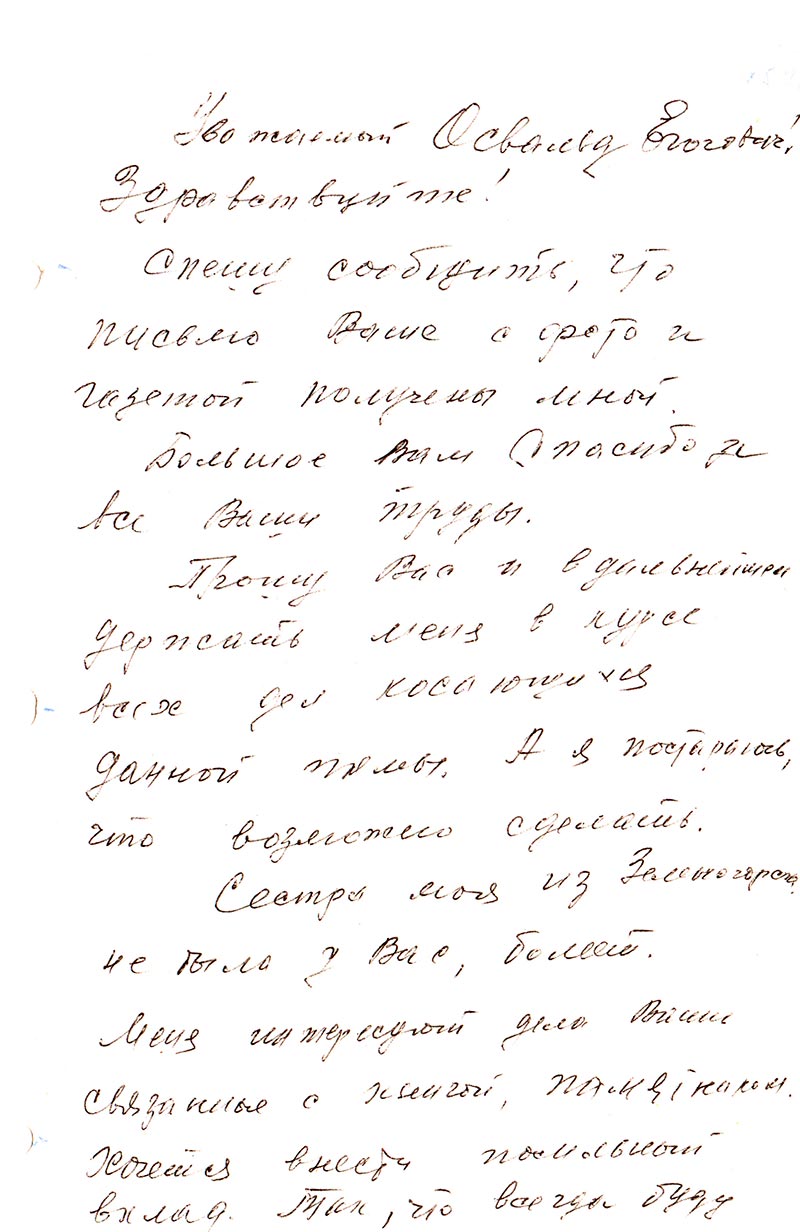 Уважаемый Освальд Егорович!
Здравствуйте!
Спешу сообщить, что
письмо Ваше с фото и
газетой получены мной.
Большое Вам Спасибо за
все Ваши труды.
Прошу Вас и в дальнейшем
держать меня в курсе
всех дел косающихся
данной темы. А я постараюсь,
что возможно сделать.
Сестра моя из Зеленогорска
не была у Вас, болеет.
Меня интересуют дела Ваши
связанные с книгой, памятником.
Хочется внести посильный
вклад. Так, что всегда буду